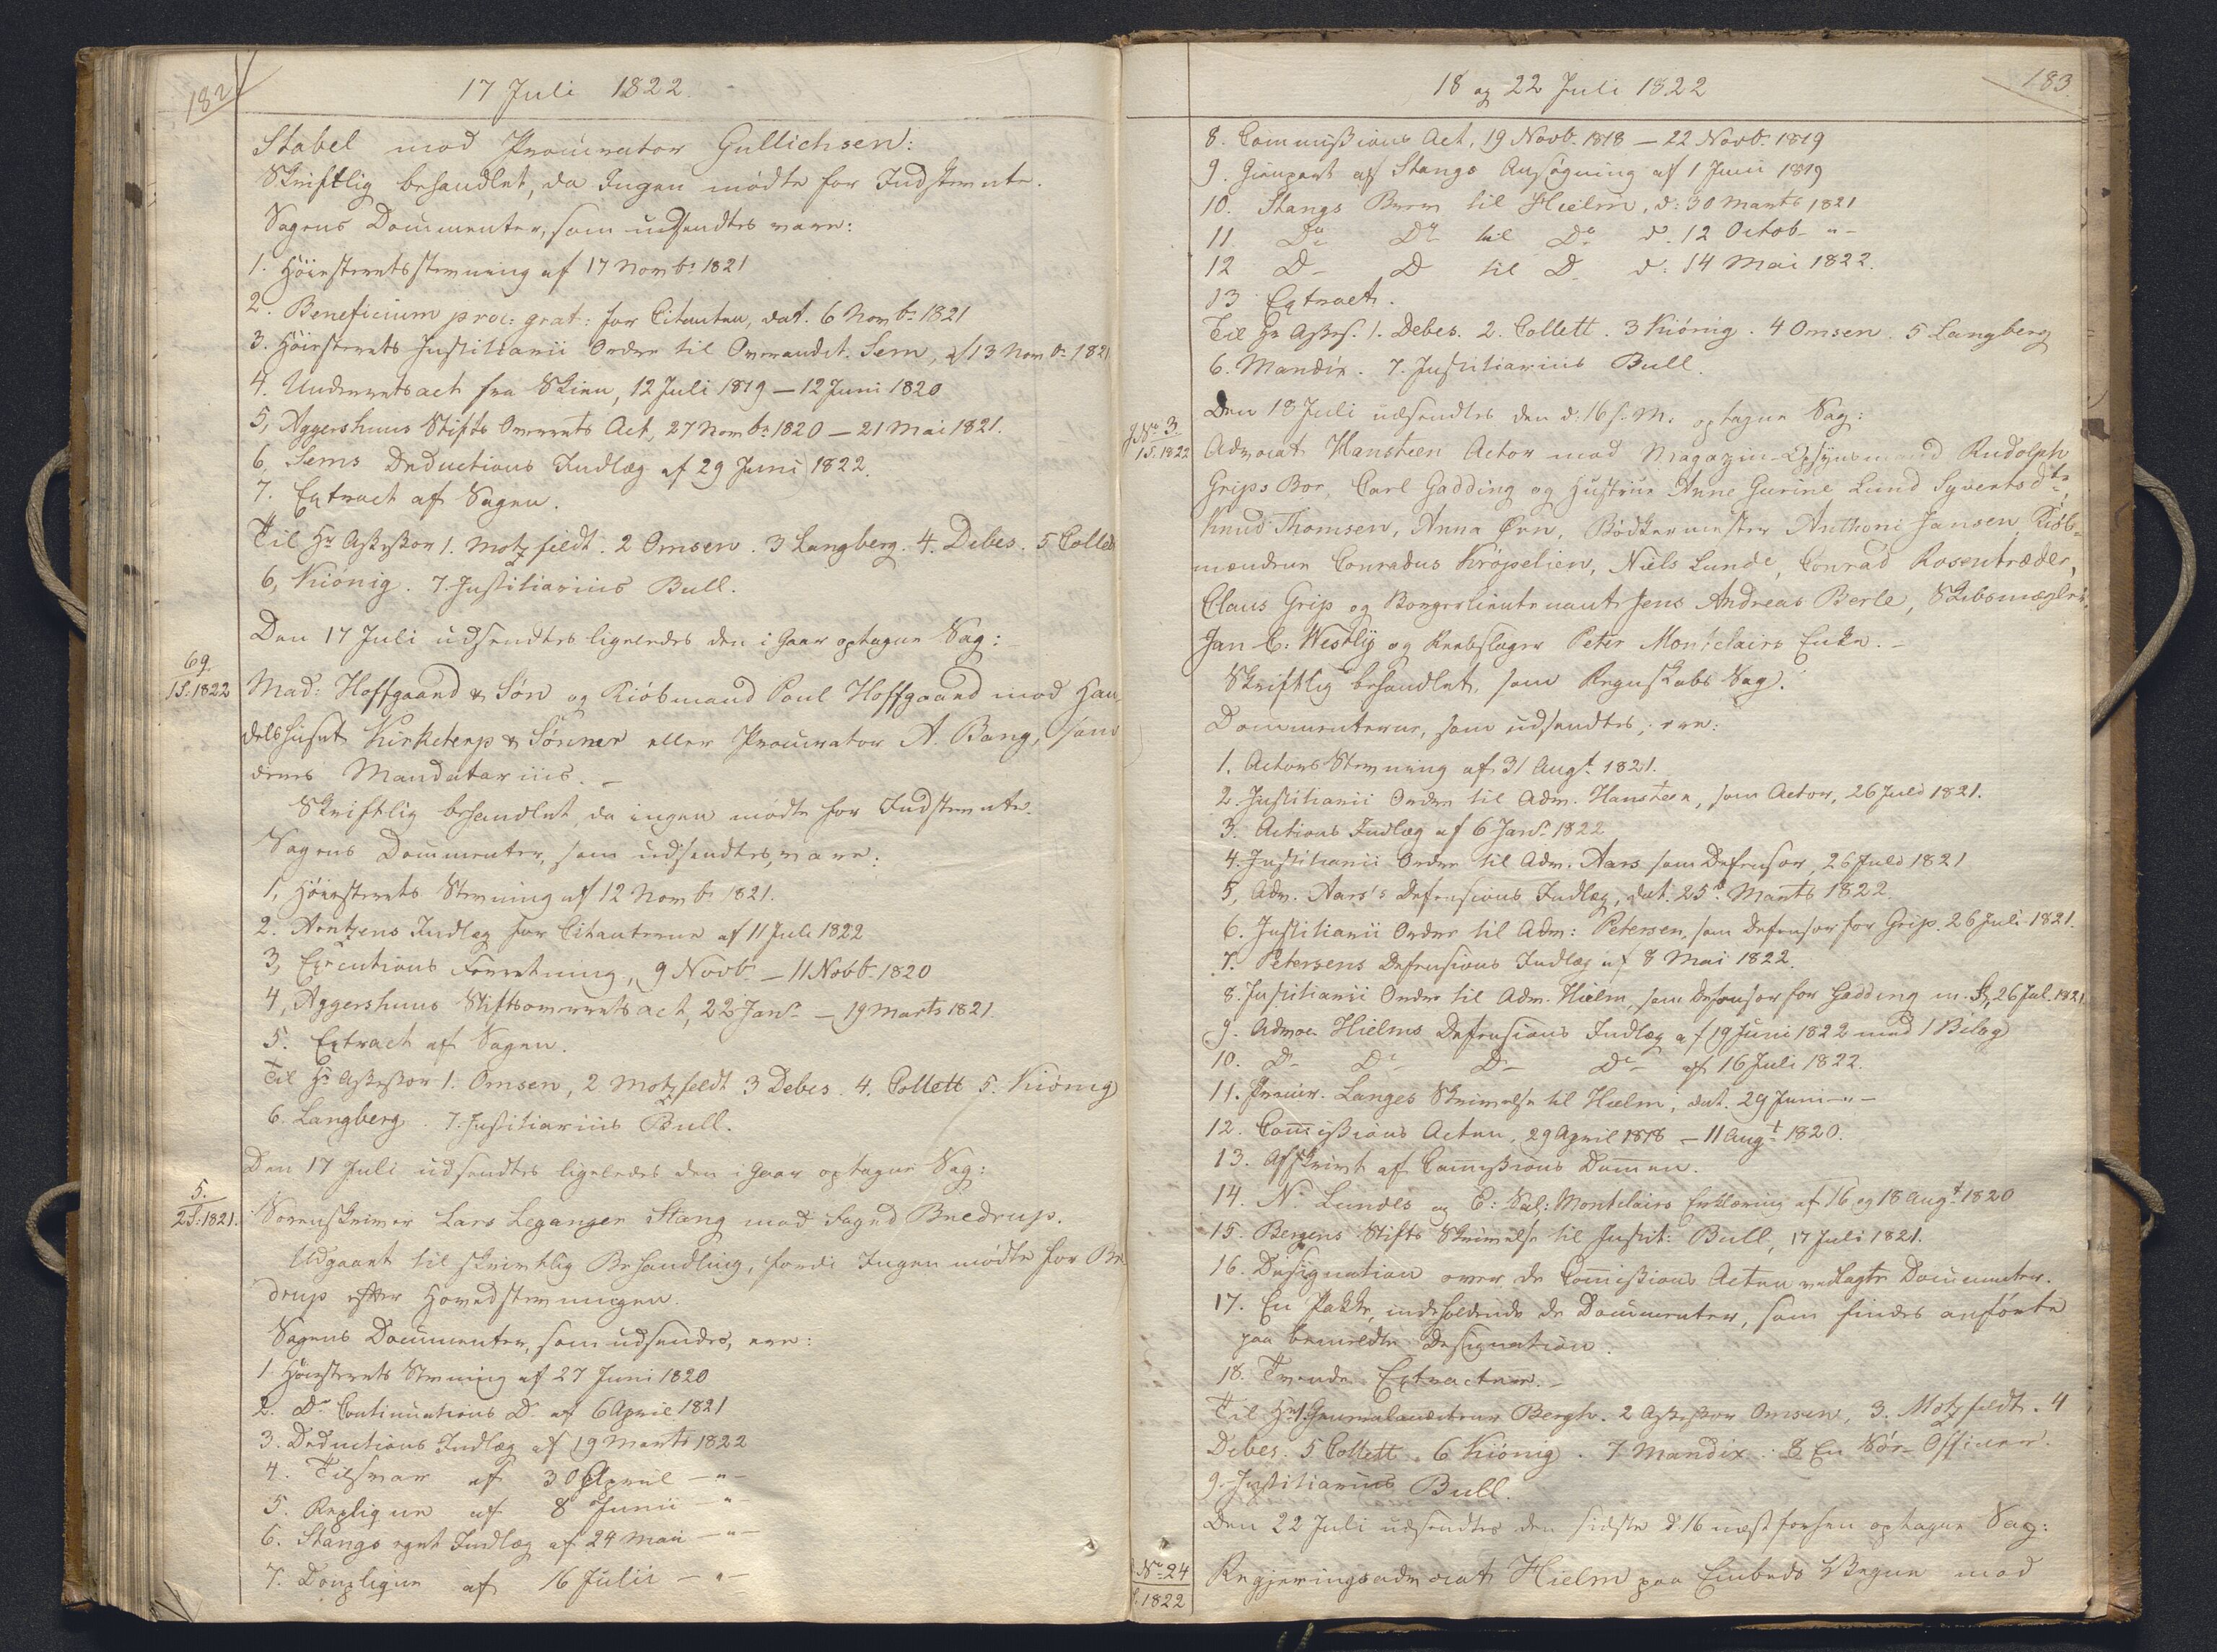 182
17 Juli 1822.
Stabel mod Procurator Gullichsen:
Skriftlig behandlet, da Ingen mødte for Indstevnte.
Sagens Documenter, som udsendtes vare:
1. Höiesteretsstevning af 17 Novbr 1821
2. Beneficium proc: grat: for Citanten, dat. 6 Novbr 1821
3. Höiesterets Justitiarii Ordre til Overaudit. Sem, af 13 Novbr 1821
4. Underretsact fra Skien, 12 Juli 1819 – 12 Juni 1820
5, Aggershuus Stifts Overrets Act, 27 Novbr 1820 – 21 Mai 1821.
6, Sems Deductions Indlæg af 29 Juni 1822.
7. Extract af Sagen.
Til Hr Assessor 1. Motzfeldt. 2 Omsen. 3 Langberg. 4. Debes. 5 Collett
6, Kiönig. 7. Justitiarius Bull.
Den 17 Juli udsendtes ligeledes den i Gaar optagne Sag:
69.
1 S. 1822
Mad: Hoffgaard & Søn og Kiöbmand Poul Hoffgaard mod Han-
delshuset Kirketerp & Sönner eller Procurator A. Bang, som
deres Mandatarius. –
Skriftlig behandlet, da ingen mødte for Indstevnte.
Sagens Documenter, som udsendtes, vare:
1, Höiesterets Stevning af 12 Novbr 1821.
2. Arntzens Indlæg for Citanterne af 11 Juli 1822
3, Executions Forretning, 9 Novb – 11 Novb. 1820
4, Aggershuus Stiftsoverretsact, 22 Janr – 19 Marts 1821.
5. Extract af Sagen.
Til Hr Assessor 1. Omsen, 2 Motzfeldt 3 Debes. 4. Collett 5. Kiönig
6. Langberg. 7. Justitiarius Bull.
Den 17 Juli udsendtes ligeledes den i Gaar optagne Sag:
5.
2 S: 1821.
Sorenskriver Lars Leganger Stang mod Foged Bredrup.
Udgaaet til skriftlig Behandling, fordi Ingen mødte for Bre
drup efter Hovedstevningen.
Sagens Documenter, som udsendes, ere:
1. Höiesterets Stevning af 27 Juni 1820
2. Do Continuations Do af 6 April 1821
3. Deductions Indlæg af 19 Marts 1822
4. Tilsvar af 30 April – " –
5. Repliqven af 8 Junii – " –
6. Stangs eget Indlæg af 24 Mai – " –
7. Dupliqven af 16 Julii – " –
18 og 22 Juli 1822
183.
8. Commissions Act, 19 Novb. 1818 – 22 Novb. 1819
9. Gienpart af Stangs Ansøgning af 1 Juni 1819
10. Stangs Brev til Hielm, d: 30 Marts 1821
11 Do Do til Do d. 12 Octob – " –
12 D – D til D d. 14 Mai 1822.
13 Extract.
Til Hr Assess. 1. Debes. 2. Collett. 3 Kiönig. 4 Omsen. 5 Langberg
6. Mandix. 7. Justitiarius Bull.
Den 18 Juli udsendtes den d: 16 s. M. optagne Sag:
No 3.
1 S. 1822
Advocat Hansteen Actor mod Magazin-Opsynsmand Rudolph
Grips Boe, Carl Gadding og Hustrue Anne Gurine Lund Syvertsdtr,
Knud Thomsen, Anna Ørn, Bødkermester Anthoni Jansen, Kiöb-
mændene Conradus Kröpelien, Niels Lunde, Conrad Rosentræder,
Claus Grip og Borgerlieutenant Jens Andreas Berle, Skibsmægler
Jan C: Westly og Reebslager Peter Montclairs Enke. –
Skriftlig behandlet, som Regnskabs Sag.
Documenterne, som udsendtes, ere:
1. Actors Stevning af 31 Augt 1821.
2. Justitiarii Ordre til Adv. Hansteen, som Actor, 26 Juli 1821.
3. Actions Indlæg af 6 Janr 1822
4. Justitiarii Ordre til Adv. Aars som Defensor, 26 Juli 1821
5, Adv. Aars's Defensions Indlæg, dat. 25d Marts 1822
6. Justitiarii Ordre til Adv: Petersen, som Defensor for Grip. 26 Juli 1821.
7. Petersens Defensions Indlæg af 8 Mai 1822.
8. Justitiarii Ordre til Adv. Hielm, som Defensor for Gadding m. fl, 26 Jul. 1821
9. Advoc. Hielms Defensions Indlæg af 19 Juni 1822 med 1 Bilag
10. D – Do – D – Do – af 16 Juli 1822.
11. Procur. Langes Skrivelse til Hielm, dat. 29 Juni – " –
12. Commissions Acten, 29 April 1818 – 11 Augt 1820.
13. Afskrivt af Commissions Dommen.
14. N. Lundes og C: Sal: Montclairs Erklæring af 16 og 18 Augt 1820
15. Bergens Stifts Skrivelse til Justit: Bull, 17 Juli 1821.
16. Designation over de Commissions Acten vedlagte Documenter.
17. En Pakke, indeholdende de Documenter, som findes anførte
paa bemeldte Designation.
18. Trende Extracter. –
Til Hr 1. Generalauditeur Bergh. 2 Assessor Omsen, 3. Motzfeldt. 4
Debes. 5 Collett. 6 Kiönig. 7 Mandix. 8 En Söe-Officeer.
9. Justitiarius Bull.
Den 22 Juli udsendtes den sidste d 16 næstforhen optagne Sag:
No 24
1822
Regjeringsadvocat Hielm paa Embeds Vegne mod